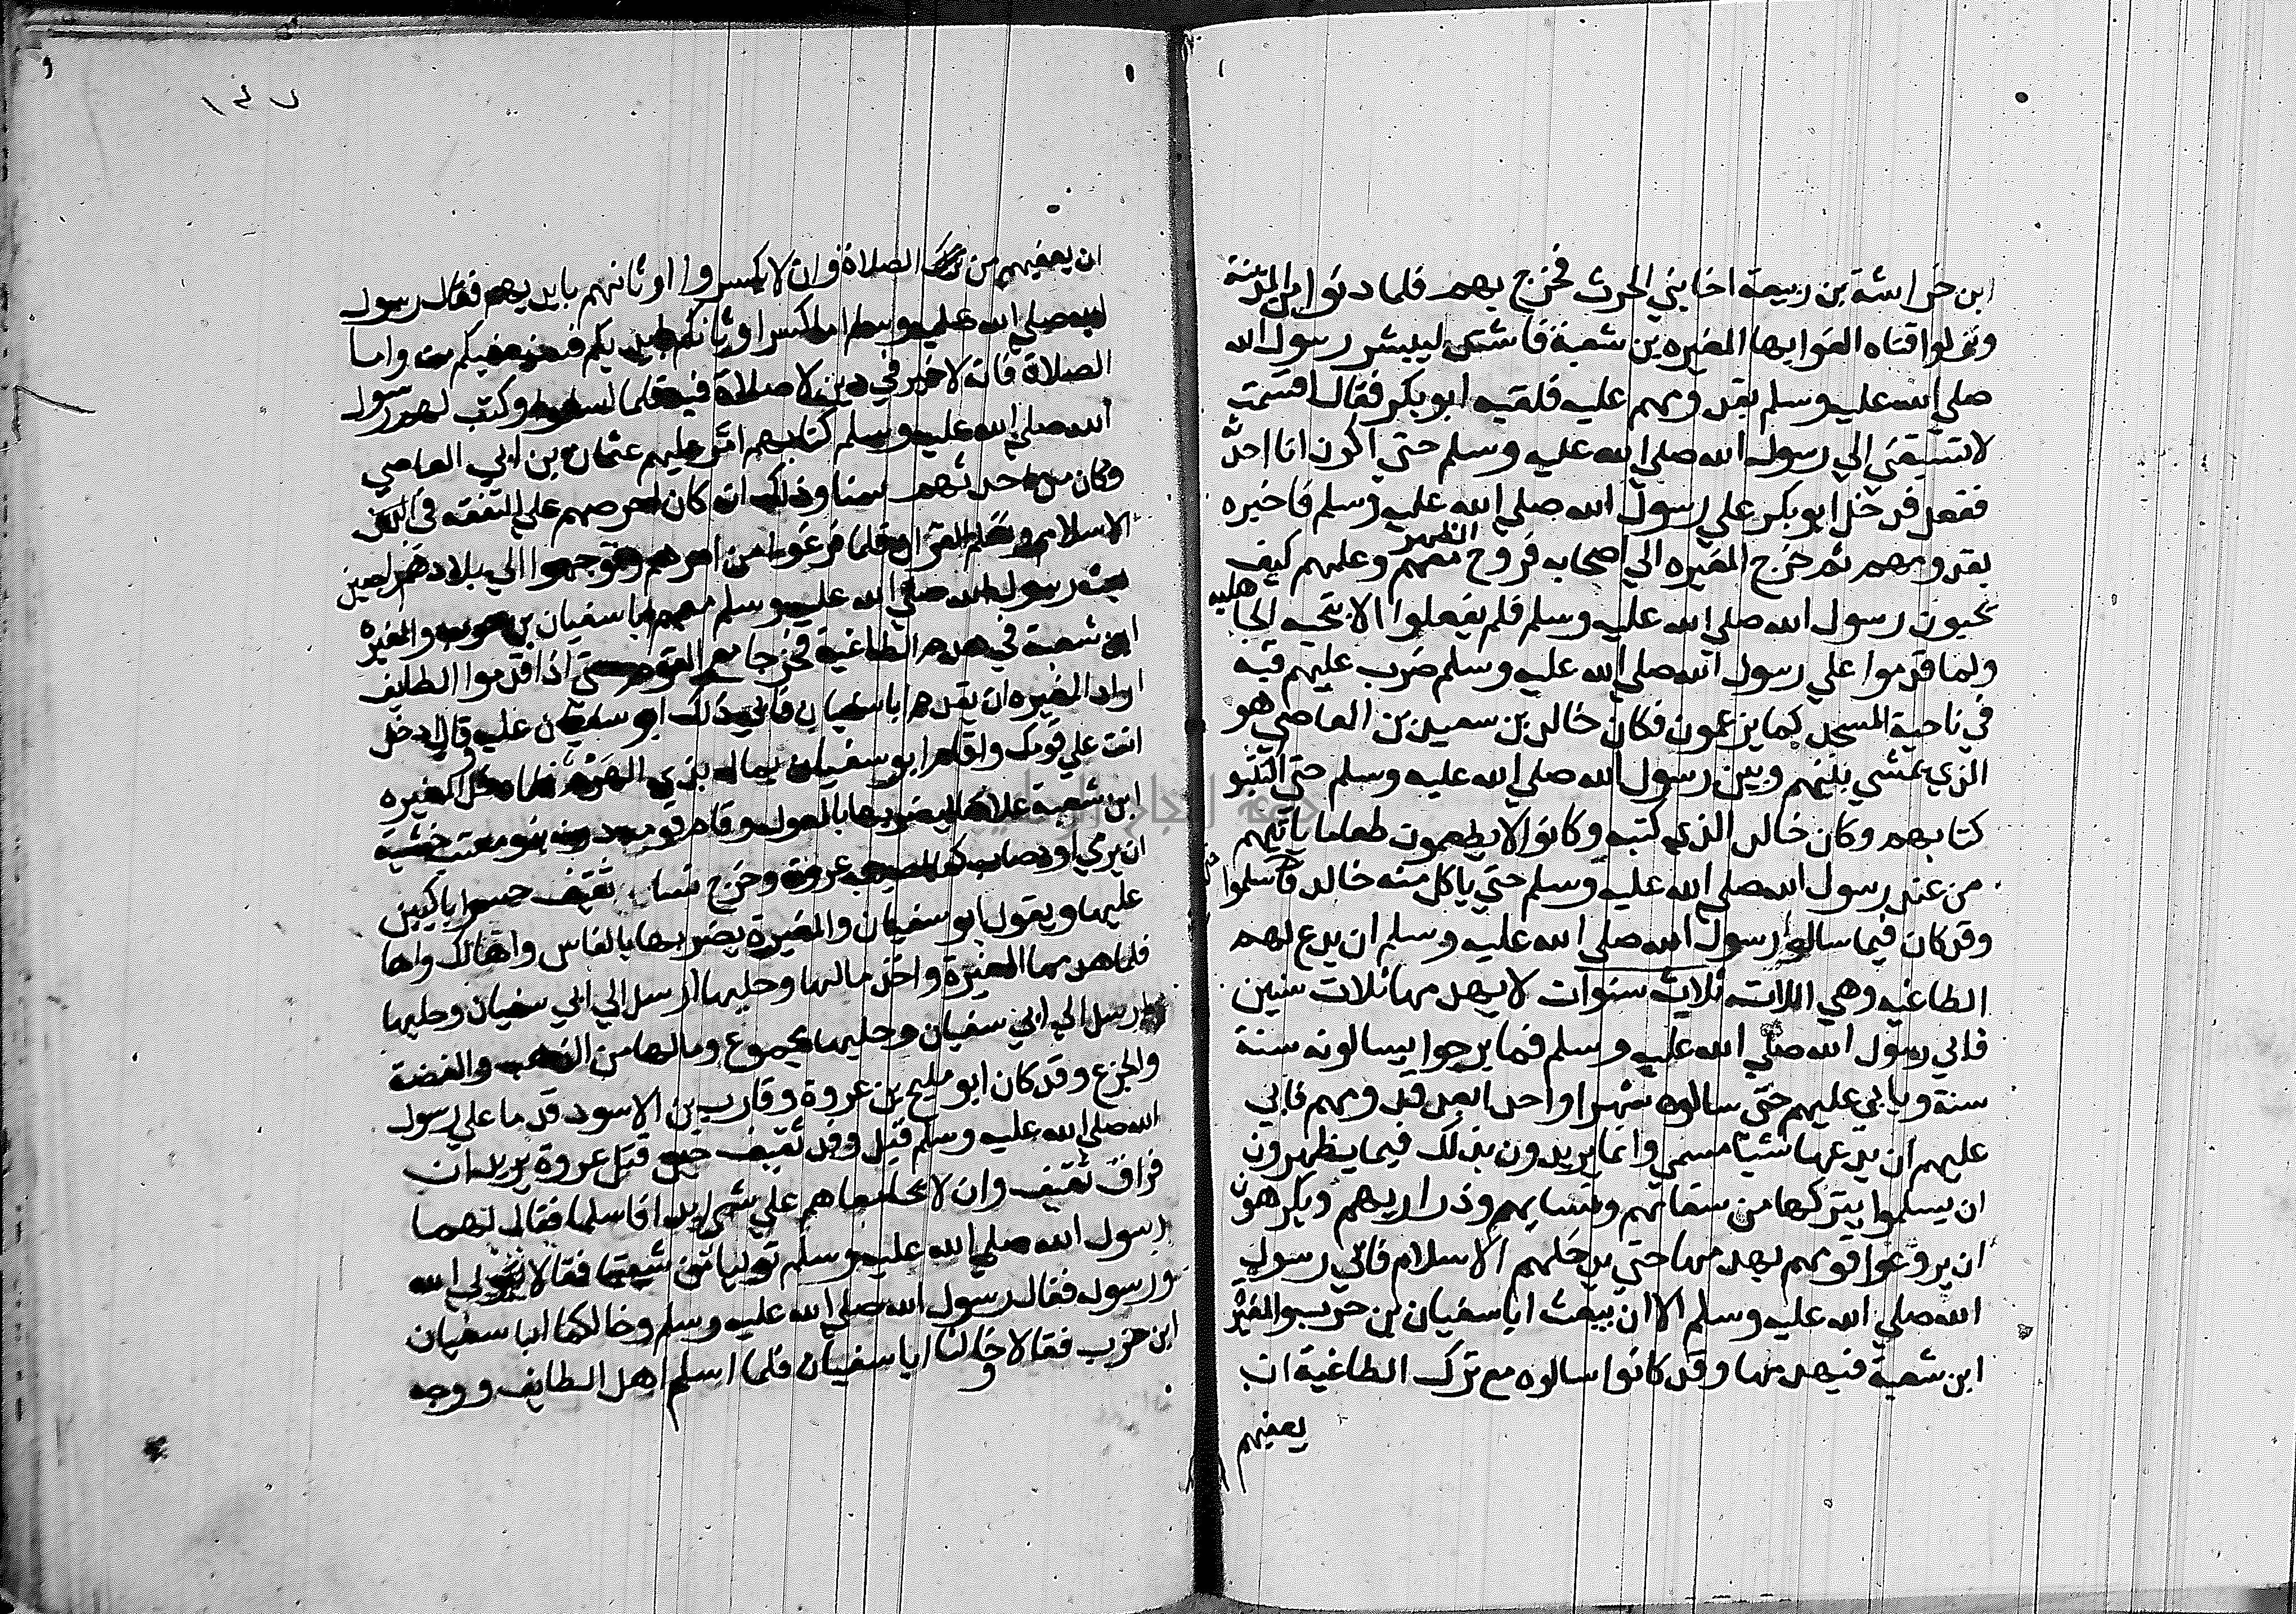 ابن خراشة بن ربيعة اخا بني الحرث فخرج بهم فلما دنوا من المدينة
ونزلوا قناه الفوا بها المغيره بن شعبة فاشتد ليبشر رسول الله
صلي الله عليه وسلم بقدومهم عليه فلقيه ابو بكر فقال اقسمت
لا تسبقني الي رسول الله صلي الله عليه وسلم حتي اكون انا احدثه
ففعل فدخل ابو بكر علي رسول الله صلي الله عليه وسلم فاخبره
بقدومهم ثم خرج المغيره الي اصحابه فروح الظهر معهم وعلمهم كيف
يحيون رسول الله صلي الله عليه وسلم فلم يفعلوا الا بتحية الجاهليه
ولما قدموا علي رسول الله صلي الله عليه وسلم ضرب عليهم قبة
في ناحية المسجد كما يزعمون فكان خالد بن سعيد بن العاصي هو
الذي يمشي بينهم وبين رسول الله صلي الله عليه وسلم حتي اكتتبو
كتابهم وكان خالد الذي كتبه وكانوا لا يطعمون طعاما ياتيهم
من عند رسول الله صلي الله عليه وسلم حتي ياكل منه خالد فاسلموا
وقد كان فيما سالوا رسول الله صلي الله عليه وسلم ان يدع لهم
الطاغيه وهي اللات ثلاث سنوات لا يهدمها ثلاث سنين
فابي رسول الله صلي الله عليه وسلم فما برحوا يسالونه سنة
سنة ويابي عليهم حتي سالوه شهرا واحدا بعد قدومهم فابي
عليهم ان يدعها شيا مسمي وانما يريدون بذلك فيما يظهرون
ان يسلموا بتركها من سفهائهم ونسايهم وذراريهم ويكرهون
ان يروعوا قومهم بهدمها حتي يدخلهم الاسلام فابي رسول
الله صلي الله عليه وسلم الا ان يبعث ابا سفيان بن حرب والمغيرة
ابن شعبة فيهدمها وقد كانوا سالوه مع ترك الطاغية ان
يعفيهم
١٤٧
ان يعفيهم من الصلاة وان لا يكسروا اوثانهم بايديهم فقال رسول
الله صلي الله عليه وسلم اما كسر اوثانكم بايديكم فسنعفيكم منه واما
الصلاة فانه لا خير في دين لا صلاة فيه فلما اسلموا وكتب لهم رسول
الله صلي الله عليه وسلم كتابهم امر عليهم عثمان بن ابي العاصي
وكان من احدثهم سنا وذلك انه كان احرصهم علي التفقه في
الاسلام وتعلم القران فلما فرغوا من امرهم وتوجهوا الي بلادهم راجعين
بعث رسول الله صلي الله عليه وسلم معهم ابا سفيان بن حرب والمغيره
ابن شعبة في هدم الطاغية فخرجا مع القوم حتي اذا قدموا الطايف
اراد المغيره ان يقدم ابا سفيان فابي ذلك ابو سفيان عليه قال ادخل
انت علي قومك واقام ابو سفيان بماله بذي الهرم فلما دخل المغيره
ابن شعبة علاها يضربها بالمعول وقام قومه دونه بنو معتب خشية
ان يرمي او يصاب كما اصيب عروة وخرج نساء ثقيف حسرا يبكين
عليها ويقول ابو سفيان والمغيرة يضربها بالفاس واها لك واها
فلما هدمها المغيرة واخذ مالها وحليها ارسل الي ابي سفيان وحليها
وارسل الي ابي سفيان وحليها مجموع ومالها من الذهب والفضة
والجزع وقد كان ابو مليح بن عروة وقارب بن الاسود قدما علي رسول
الله صلي الله عليه وسلم قبل وفد ثقيف حين قتل عروة يريدان
فراق ثقيف وان لا يجامعاهم علي شي ابدا فاسلما فقال لهما
رسول الله صلي الله عليه وسلم توليا من شيتما فقالا نتولي الله
ورسوله فقال رسول الله صلي الله عليه وسلم وخالكما ابا سفيان
ابن حرب فقالا وخالنا ابا سفيان فلما اسلم اهل الطايف ووجه